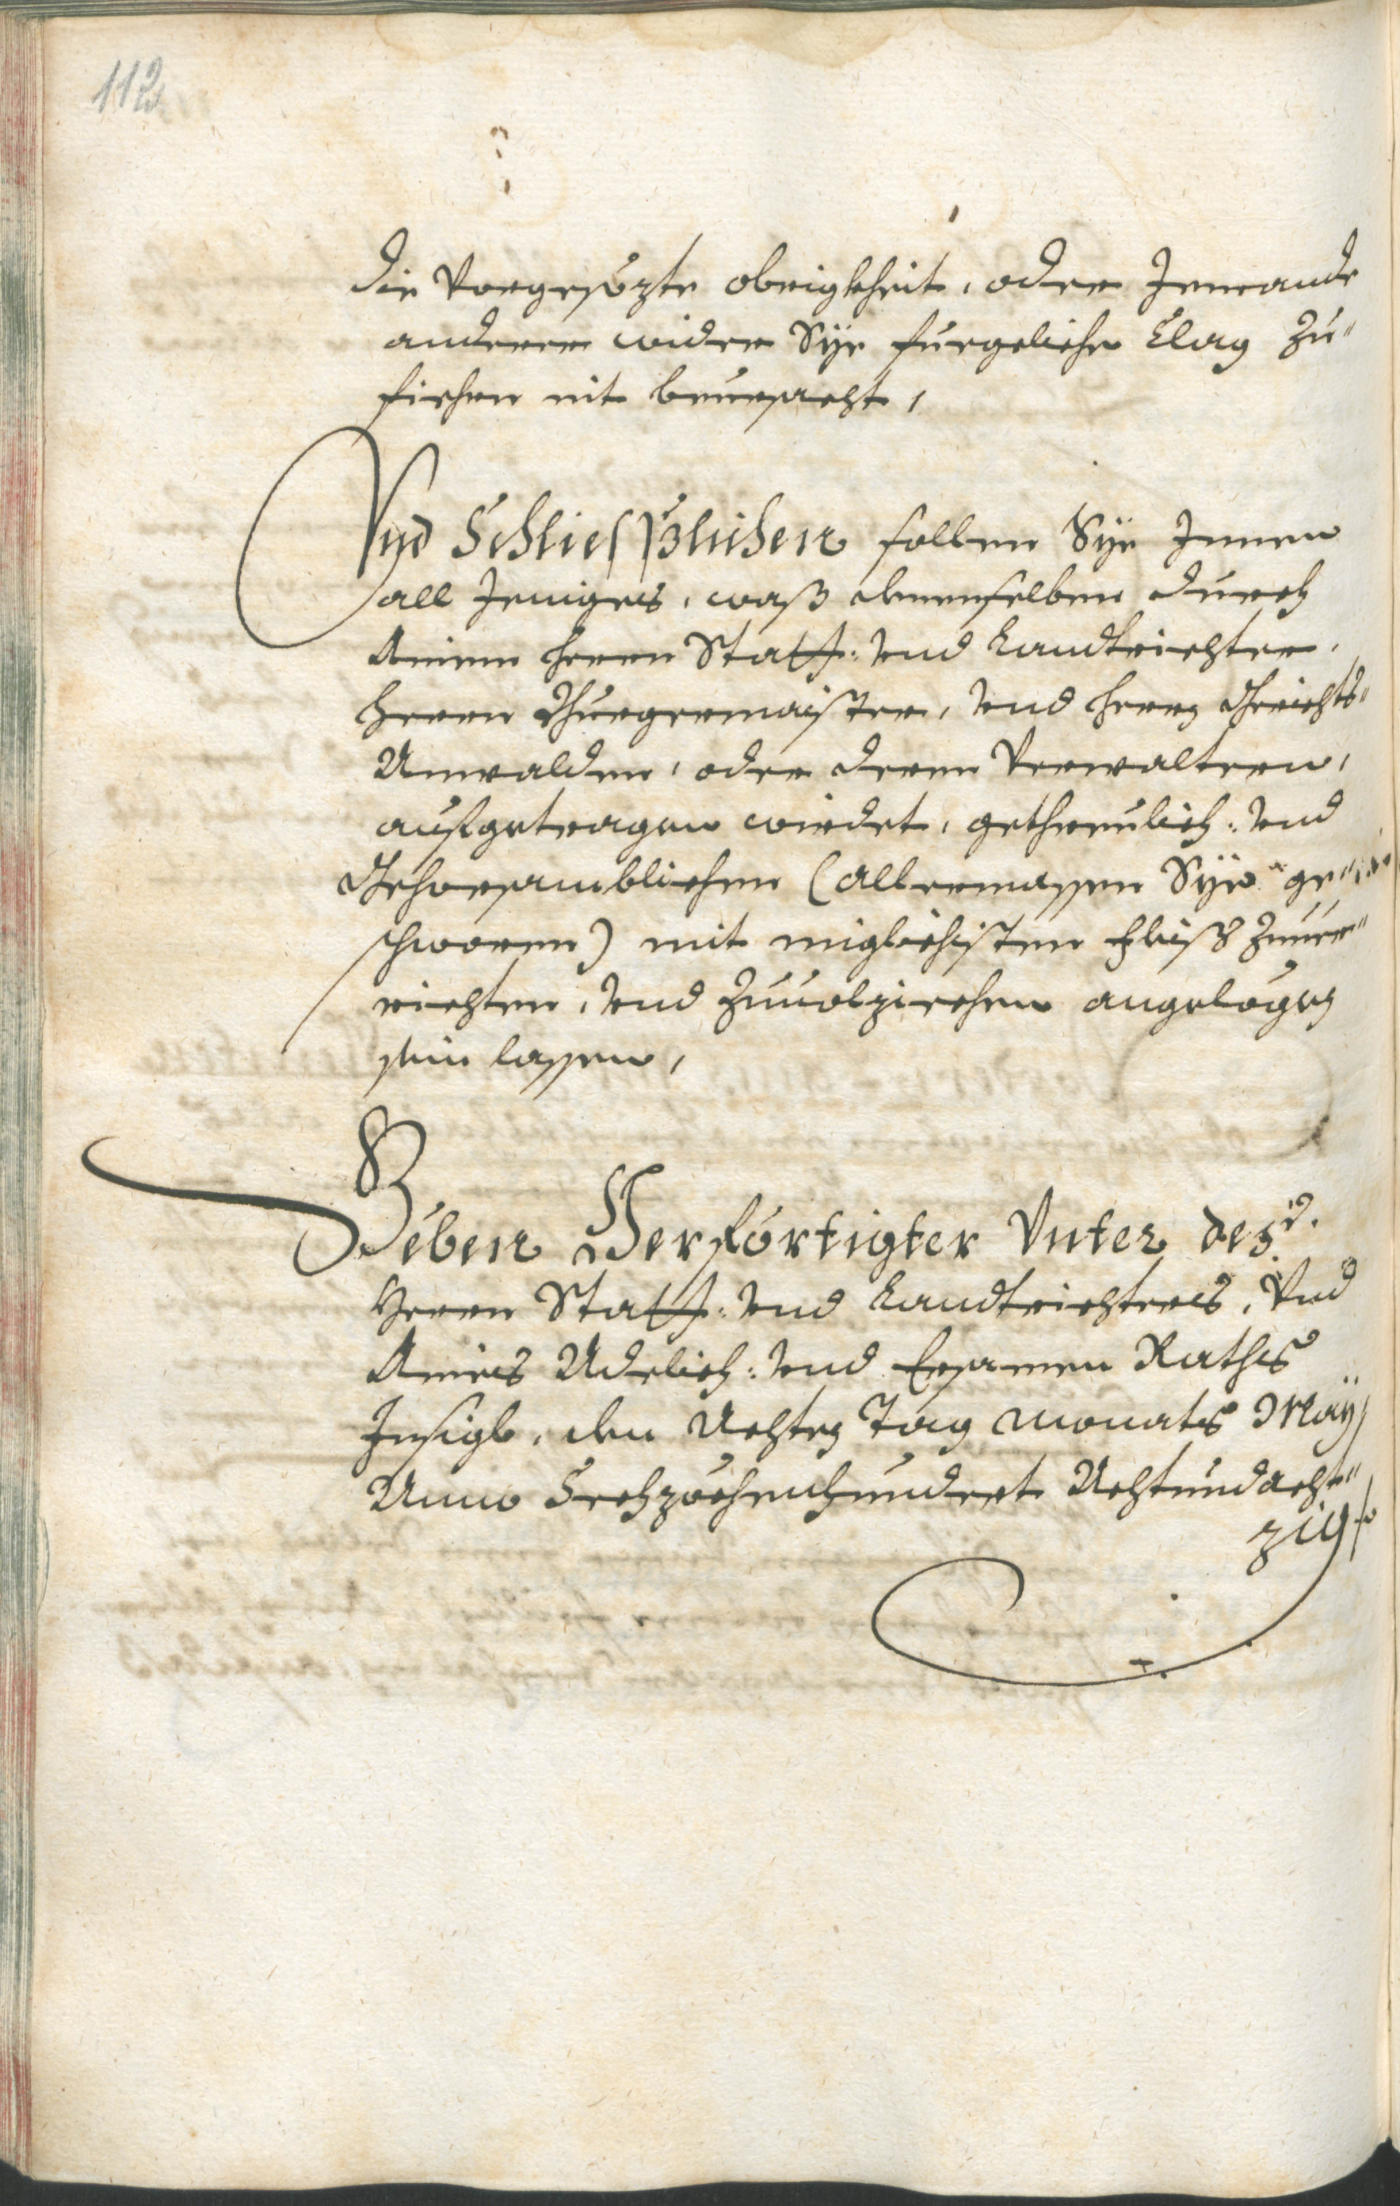 112
die Vorgesözte obrigkheit, oder Jemandt
anderer wider Sÿe fuegeliche Clag zu„
fiehren nit beuesacht,
Vnd Schliesslichen sollen Sÿe Innen
all Jeniges, waß denenselben durch
Ainem herrn Statt: vnd Landtrichter,
herrn Burgermaister, vnd herrn Gerichts„
Anwalden, oder deren Verwaltern,
aufgetragen wirdet, gethreulich: vnd
Gehorsamblichen (allermassen Sÿe ge„
schworen) mit miglichisten Fleiß zuuer„
richten, vnd zuuolziechen angelögen
sein lassen,
Geben Verförtigter Vnter des
Herrn Statt: vnd Landtrichters, Vnd
Aines Adelich: vnd Ersamen Raths
Insigl, den Achten Tag Monats Maÿ
Anno Sechzöchenhundert Achtundacht„
zig